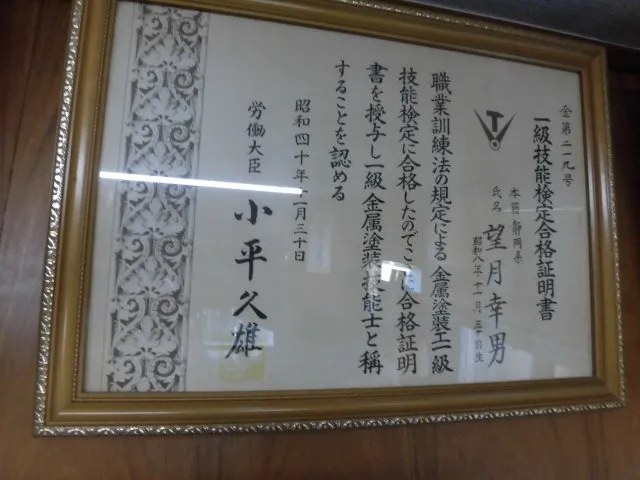 金第二一九号
一級技能検定合格証明書
本籍 静岡県
氏名 望月幸男
昭和八年十一月三十日生
職業訓練法の規定による 金属塗装工一級
技能検定に合格したのでこの合格証明
書を授与し一級 金属塗装技能士と稱
することを認める
昭和四十年十一月三十日
労働大臣 小平久雄